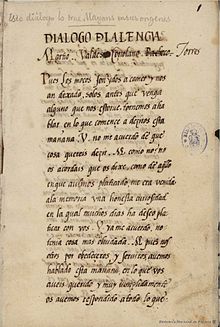 Este diálogo lo trae Mayans en sus origenes
DIALOGO DE LA LENGUA
Martio, Valdes, Coriolano, Pacheco. Torres
Pues los moços son ydos a comer y nos
an dexado solos antes que venga
alguno que nos estorve tornemos a ha
blar en lo que començe a deziros esta
mañana. V. no me acuerdo de que
cosa quereis dezir. M. como no? no
os acordais que os dixe como de aquello
en que aviamos platicado me era venida
ala memoria una honesta curiosidad
en la qual muchos dias ha deseo pla
ticar con vos. V. ya me acuerdo, no
tenia cosa mas olvidada. M. pues nos
otros por obedeceros y serviros avemos
hablado esta mañana en lo que vos
aveis querido y muy cumplidamente
os avemos respondido a todo lo que
Biblioteca Nacional de España